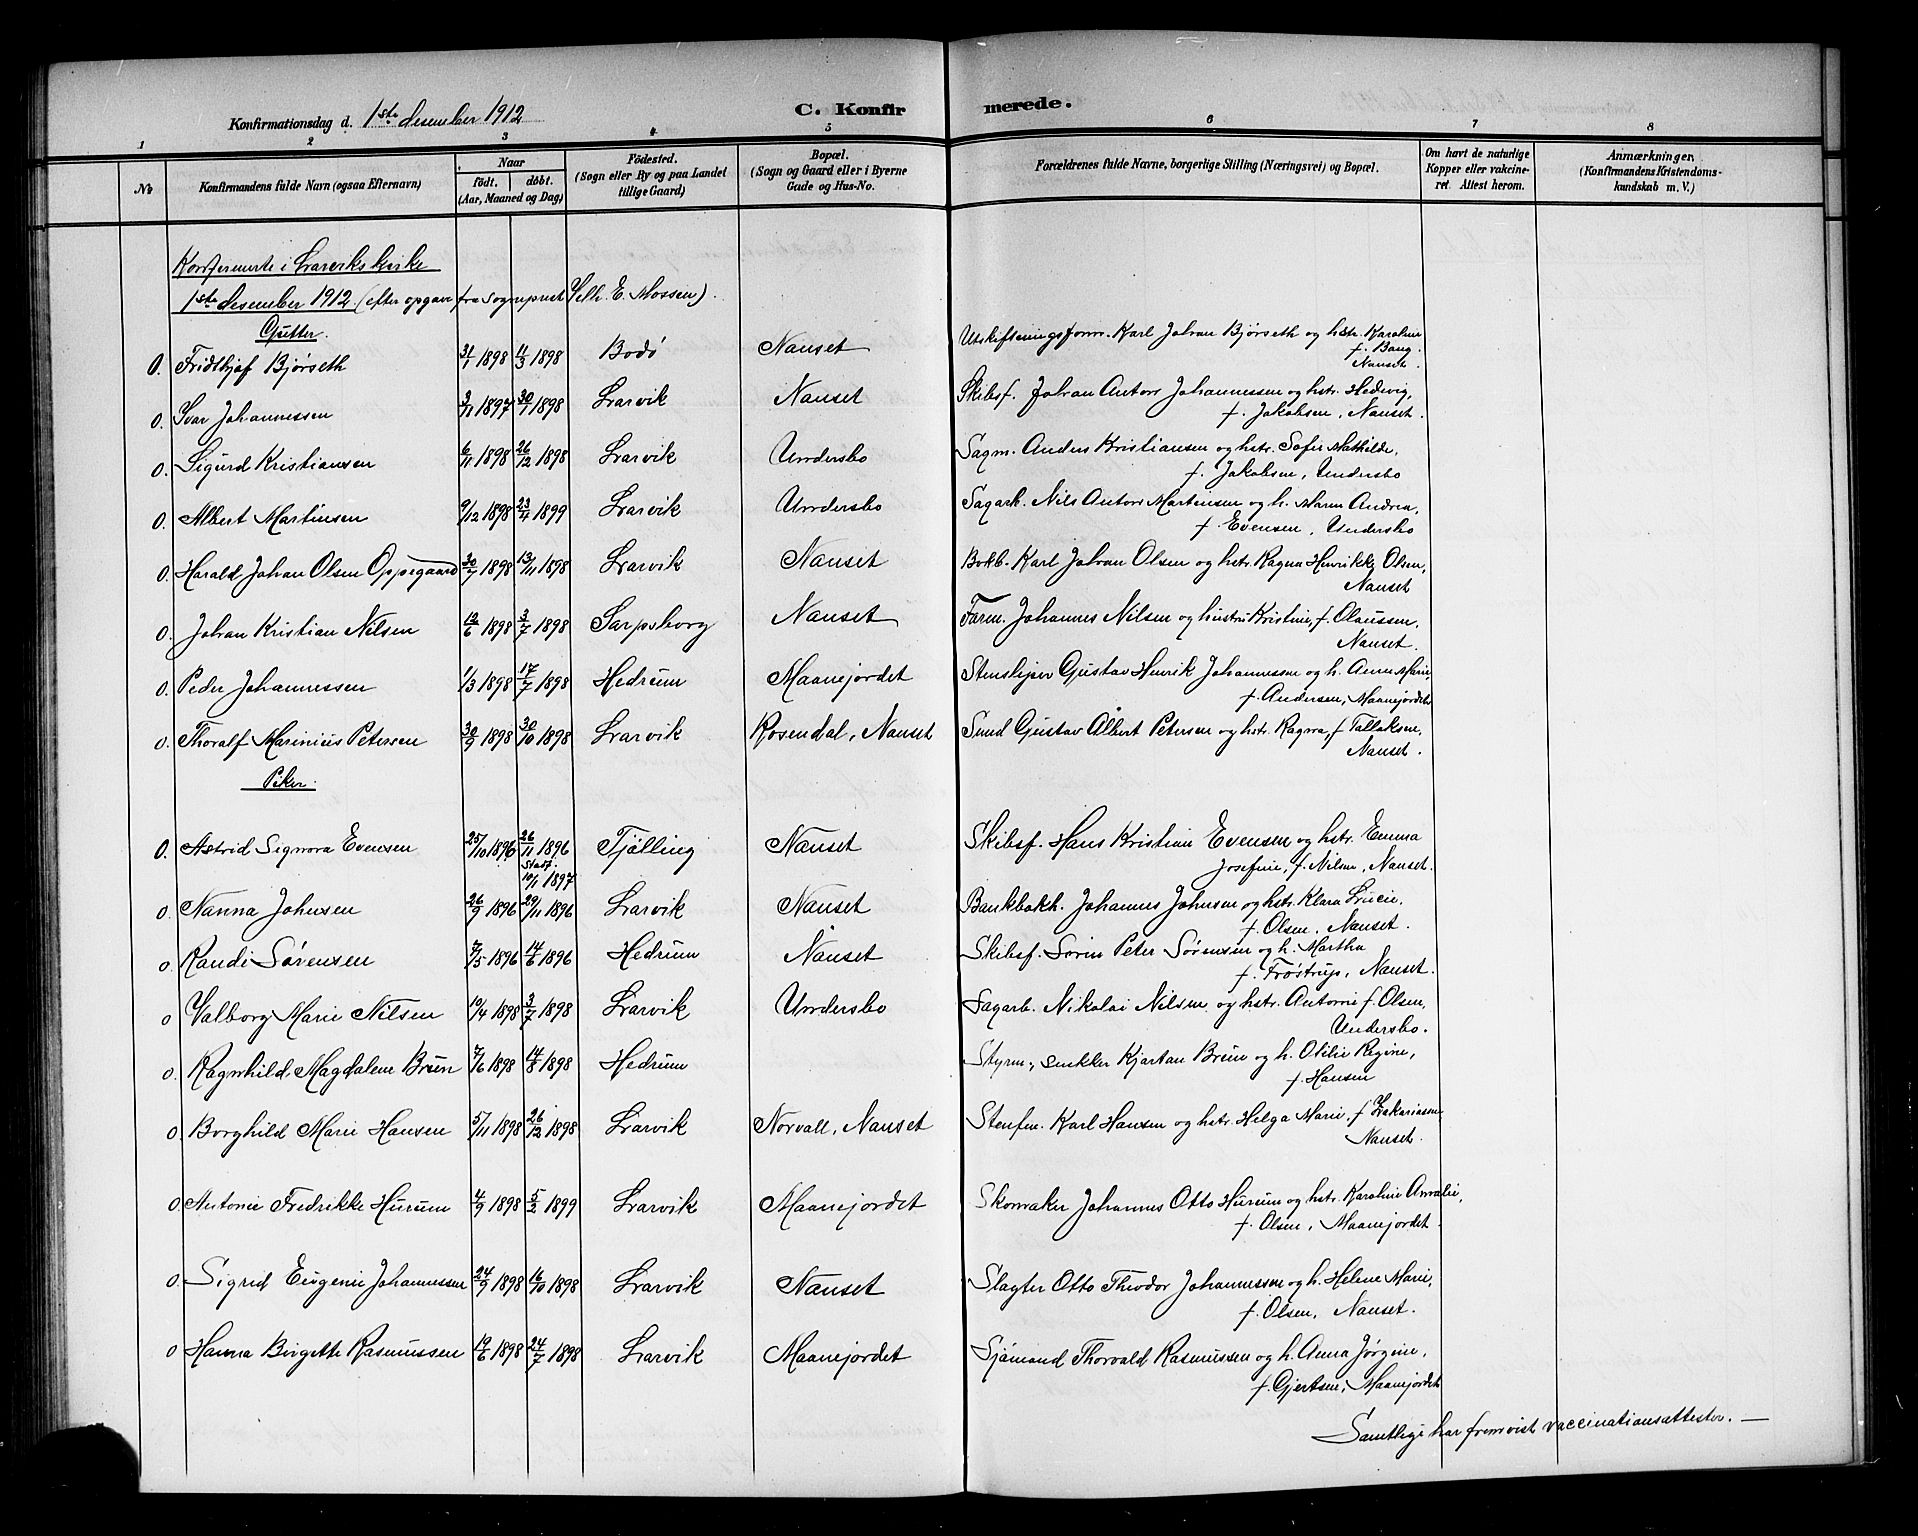 Konfirmationsdag d. 1ste desember 1912
C. Konfirmerede.
1 2 3 4 5 6 7 8
No
Konfirmandens fulde Navn (ogsaa Efternavn)
Naar
födt. döbt.
(Aar, Maaned og Dag)
Födested.
(Sogn eller By og paa Landet
tillige Gaard)
Bopæl.
(Sogn og Gaard eller i Byerne
Gade og Hus-No.
Forældrenes fulde Navne, borgerlige Stilling (Næringsvei) og Bopæl.
Om havt de naturlige
Kopper eller vakcine-
ret. Attest herom.
Anmærkninger.
(Konfirmandens Kristendoms-
kundskab m. V.)
Konfirmerte i Larviks kirke
1ste desember 1912 (efter opgave fra sogneprest Vilh. E. Mossen).
Gutter.
0. Fridthjof Bjørseth 31/1 1898 11/3 1898 Bodö Nanset Utskiftningsform. Karl Johan Bjørseth og hstr. Karoline
f. Bang.
Nanset.
0. Ivar Johannessen 3/11 1897 30/1 1898 Larvik Nanset Skibsf. Johan Anton Johannessen og hstr. Hedevig,
f. Jakobsen, Nanset.
0. Sigurd Kristiansen 6/11 1898 26/12 1898 Larvik Undersbo Sagm. Anders Kristiansen og hstr. Sofie Mathilde,
f. Jakobsen, Undersbo
0. Albert Martinsen 9/12 1898 23/4 1899 Larvik Undersbo Sagarb. Nils Anton Martinsen og h. Maren Andrea,
f. Evensen, Undersbo
0. Harald Johan Olsen Oppegaard 30/7 1898 13/11 1898 Larvik Nanset Bokb. Karl Johan Olsen og hstr. Ragna Henrikke Olsen,
Nanset
0. Johan Kristian Nilsen 12/6 1898 3/7 1898 Sarpsborg Nanset Farm. Johannes Nilsen og hustru Kristine, f. Olaussen,
Nanset.
0. Peder Johannessen 1/3 1898 17/7 1898 Hedrum Maanejordet Stensliper Gustav Henrik Johannessen og h. Anne Marie
f. Andersen, Maanejordet
0. Thoralf Marinius Petersen 30/9 1898 30/10 1898 Larvik Rosendal, Nanset Smed Gustav Albert Petersen og hstr. Ragna, f. Tallaksen,
Nanset.
Piker.
0. Astrid Signora Evensen 25/10 1896 26/11 1896 Tjölling Nanset Skibsf. Hans Kristian Evensen og hstr. Emma
Stadf. 10/1 1897 Josefine, f. Nilsen, Nanset.
0. Nanna Johnsen 26/9 1896 29/11 1896 Larvik Nanset Bankbokh. Johannes Johnsen og hstr. Klara Lucie,
f. Olsen, Nanset.
0 Randi Sørensen 7/5 1896 14/6 1896 Hedrum Nanset Skibsf. Sørin Peter Sørensen og h. Martha
f. Frøstrup, Nanset.
0 Valborg Marie Nilsen 10/4 1898 3/7 1898 Larvik Undersbo Sagarb. Nikolai Nilsen og hstr. Antonie f. Olsen,
Undersbo.
0. Ragnhild Magdalene Brun 7/6 1898 14/8 1898 Hedrum Styrm., snekker Kjartan Brun og h. Otilie Regine,
f. Hansen
0. Borghild Marie Hansen 5/11 1898 26/12 1898 Larvik Norvall, Nanset Karl Hansen og hstr. Helga Marie, f. Zakariassen
Nanset.
0. Antonie Fredrikke Hurum 4/9 1898 5/2 1899 Larvik Maanejordet Skomaker Johannes Otto Hurum og hstr. Karoline Amalie,
f. Olsen, Maanejordet.
0. Sigrid Eugenie Johannessen 24/9 1898 16/10 1898 Larvik Nanset Slagter Otto Theodor Johannessen og h. Helene Marie,
f. Olsen, Nanset.
0 Hanna Birgette Rasmussen 19/6 1898 24/7 1898 Larvik Maanejordet Sjömand Thorvald Rasmussen og h. Anna Jørgine,
f. Gjertsen, Maanejordet
Samtlige har fremvist vaccinationsattester. —